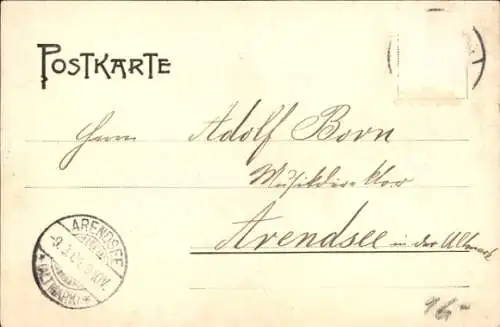 POSTKARTE
Herrn Adolf Born
Musikdirektor
Arendsee in der Altmark
ARENDSEE
(ALTMARK)